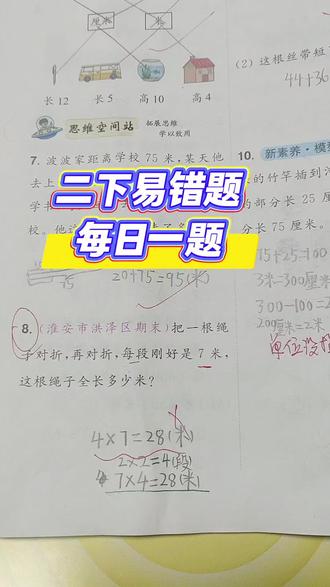 厘米
米
长 12
长 5
高 10
高 4
(2) 这根丝带短
44+36
思维空间站
拓展思维
学以致用
7. 波波家距离学校 75 米,某天他
去上
学书
校。他
20+75=95(米)
75
二下易错题
每日一题
8. (淮安市洪泽区期末)把一根绳
子对折,再对折,每段刚好是 7 米,
这根绳子全长多少米?
4×7=28(米)
2×2=4(段)
7×4=28(米)
10. 新素养·模
的竹竿插到
的部分长 25 厘
分长 75 厘米。
75+25=100
3米=300厘米
300-100=2
200厘米=2米
单位没